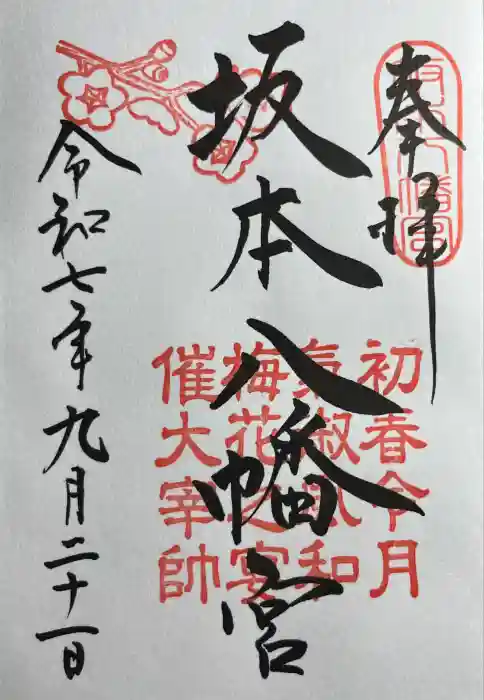 奉拝
坂本八幡宮
初春令月
気淑風和
梅花之宴
催大宰帥
令和七年九月二十一日